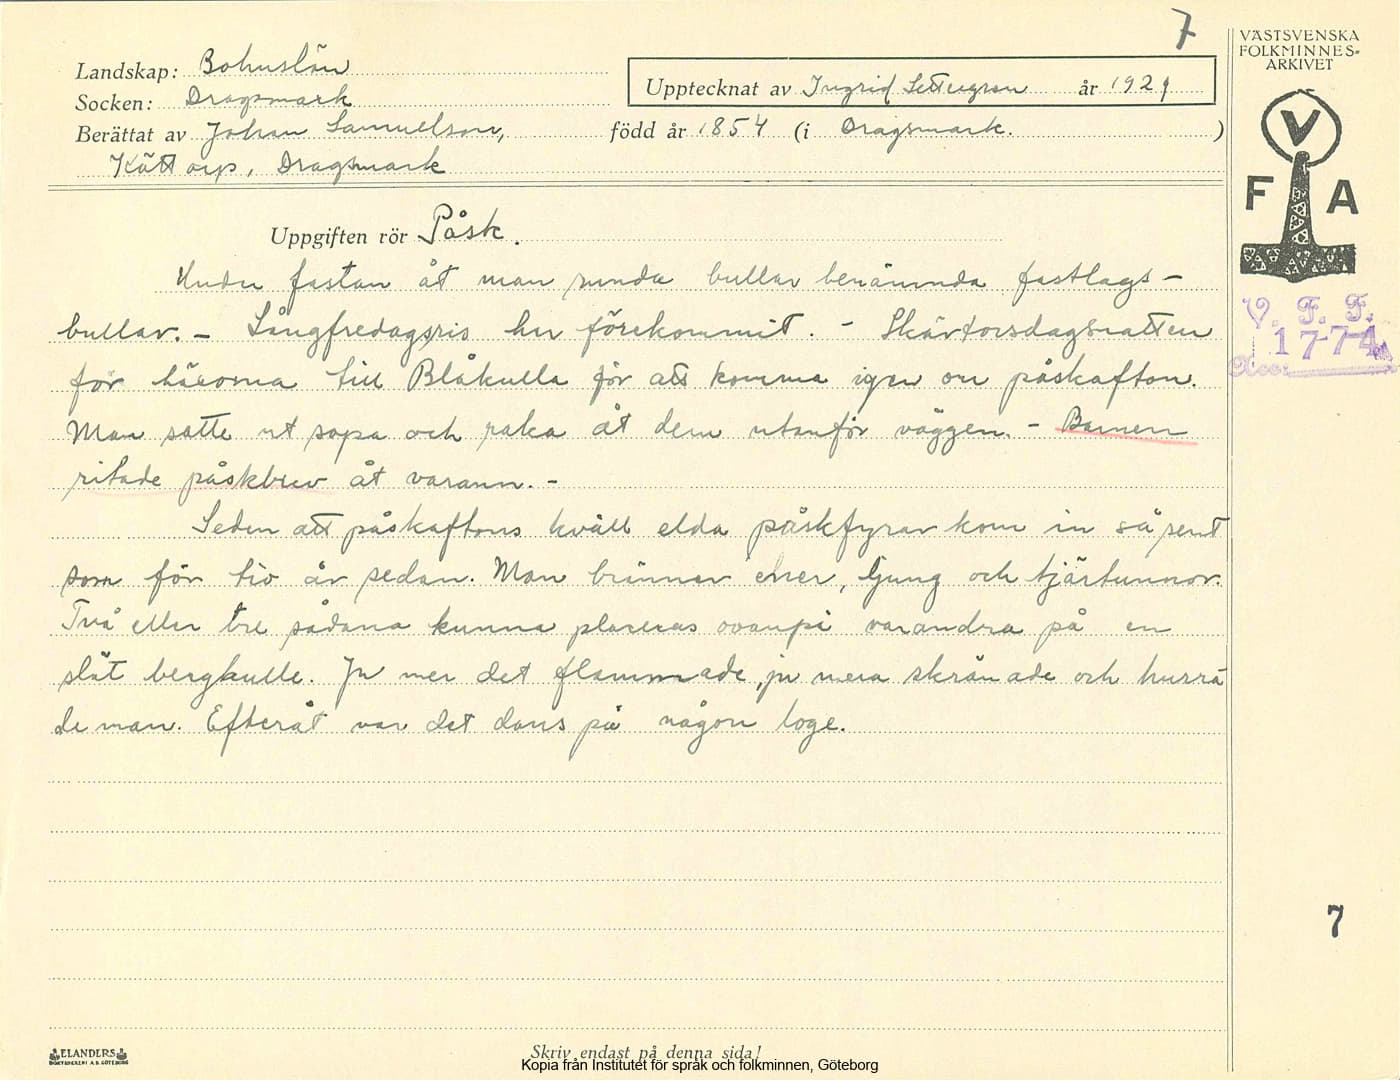 7
VÄSTSVENSKA
FOLKMINNES-
ARKIVET
Landskap: Bohuslän
Socken: Dragsmark
Upptecknat av Ingrid år 1929
Berättat av Johan Samuelson, född år 1854 (i Dragsmark. )
Kättorp, Dragsmark
V
F A
Uppgiften rör Påsk.
Under fastan åt man runda bullar benämnda fastlags-
bullar. - Långfredagsris har förekommit. - Skärtorsdagsnatten
för häxorna till Blåkulla för att komma igen on påskafton.
Man satte ut sopa och raka åt dem utanför väggen. - Barnen
ritade påskbrev åt varann. -
Seden att påskaftons kväll elda påskfyrar kom in så sent
som för tio år sedan. Man bränner ener, ljung och tjärtunnor.
Två eller tre sådana kunna placeras ovanpå varandra på en
slät bergkulle. Ju mer det flammade, ju mera skrånade och hurra
de man. Efteråt var det dans på någon loge.
V. F. F.
1774
Acc:
7
ELANDERS
BOKTRYCKERI A.B. GÖTEBORG
Skriv endast på denna sida!
Kopia från Institutet för språk och folkminnen, Göteborg